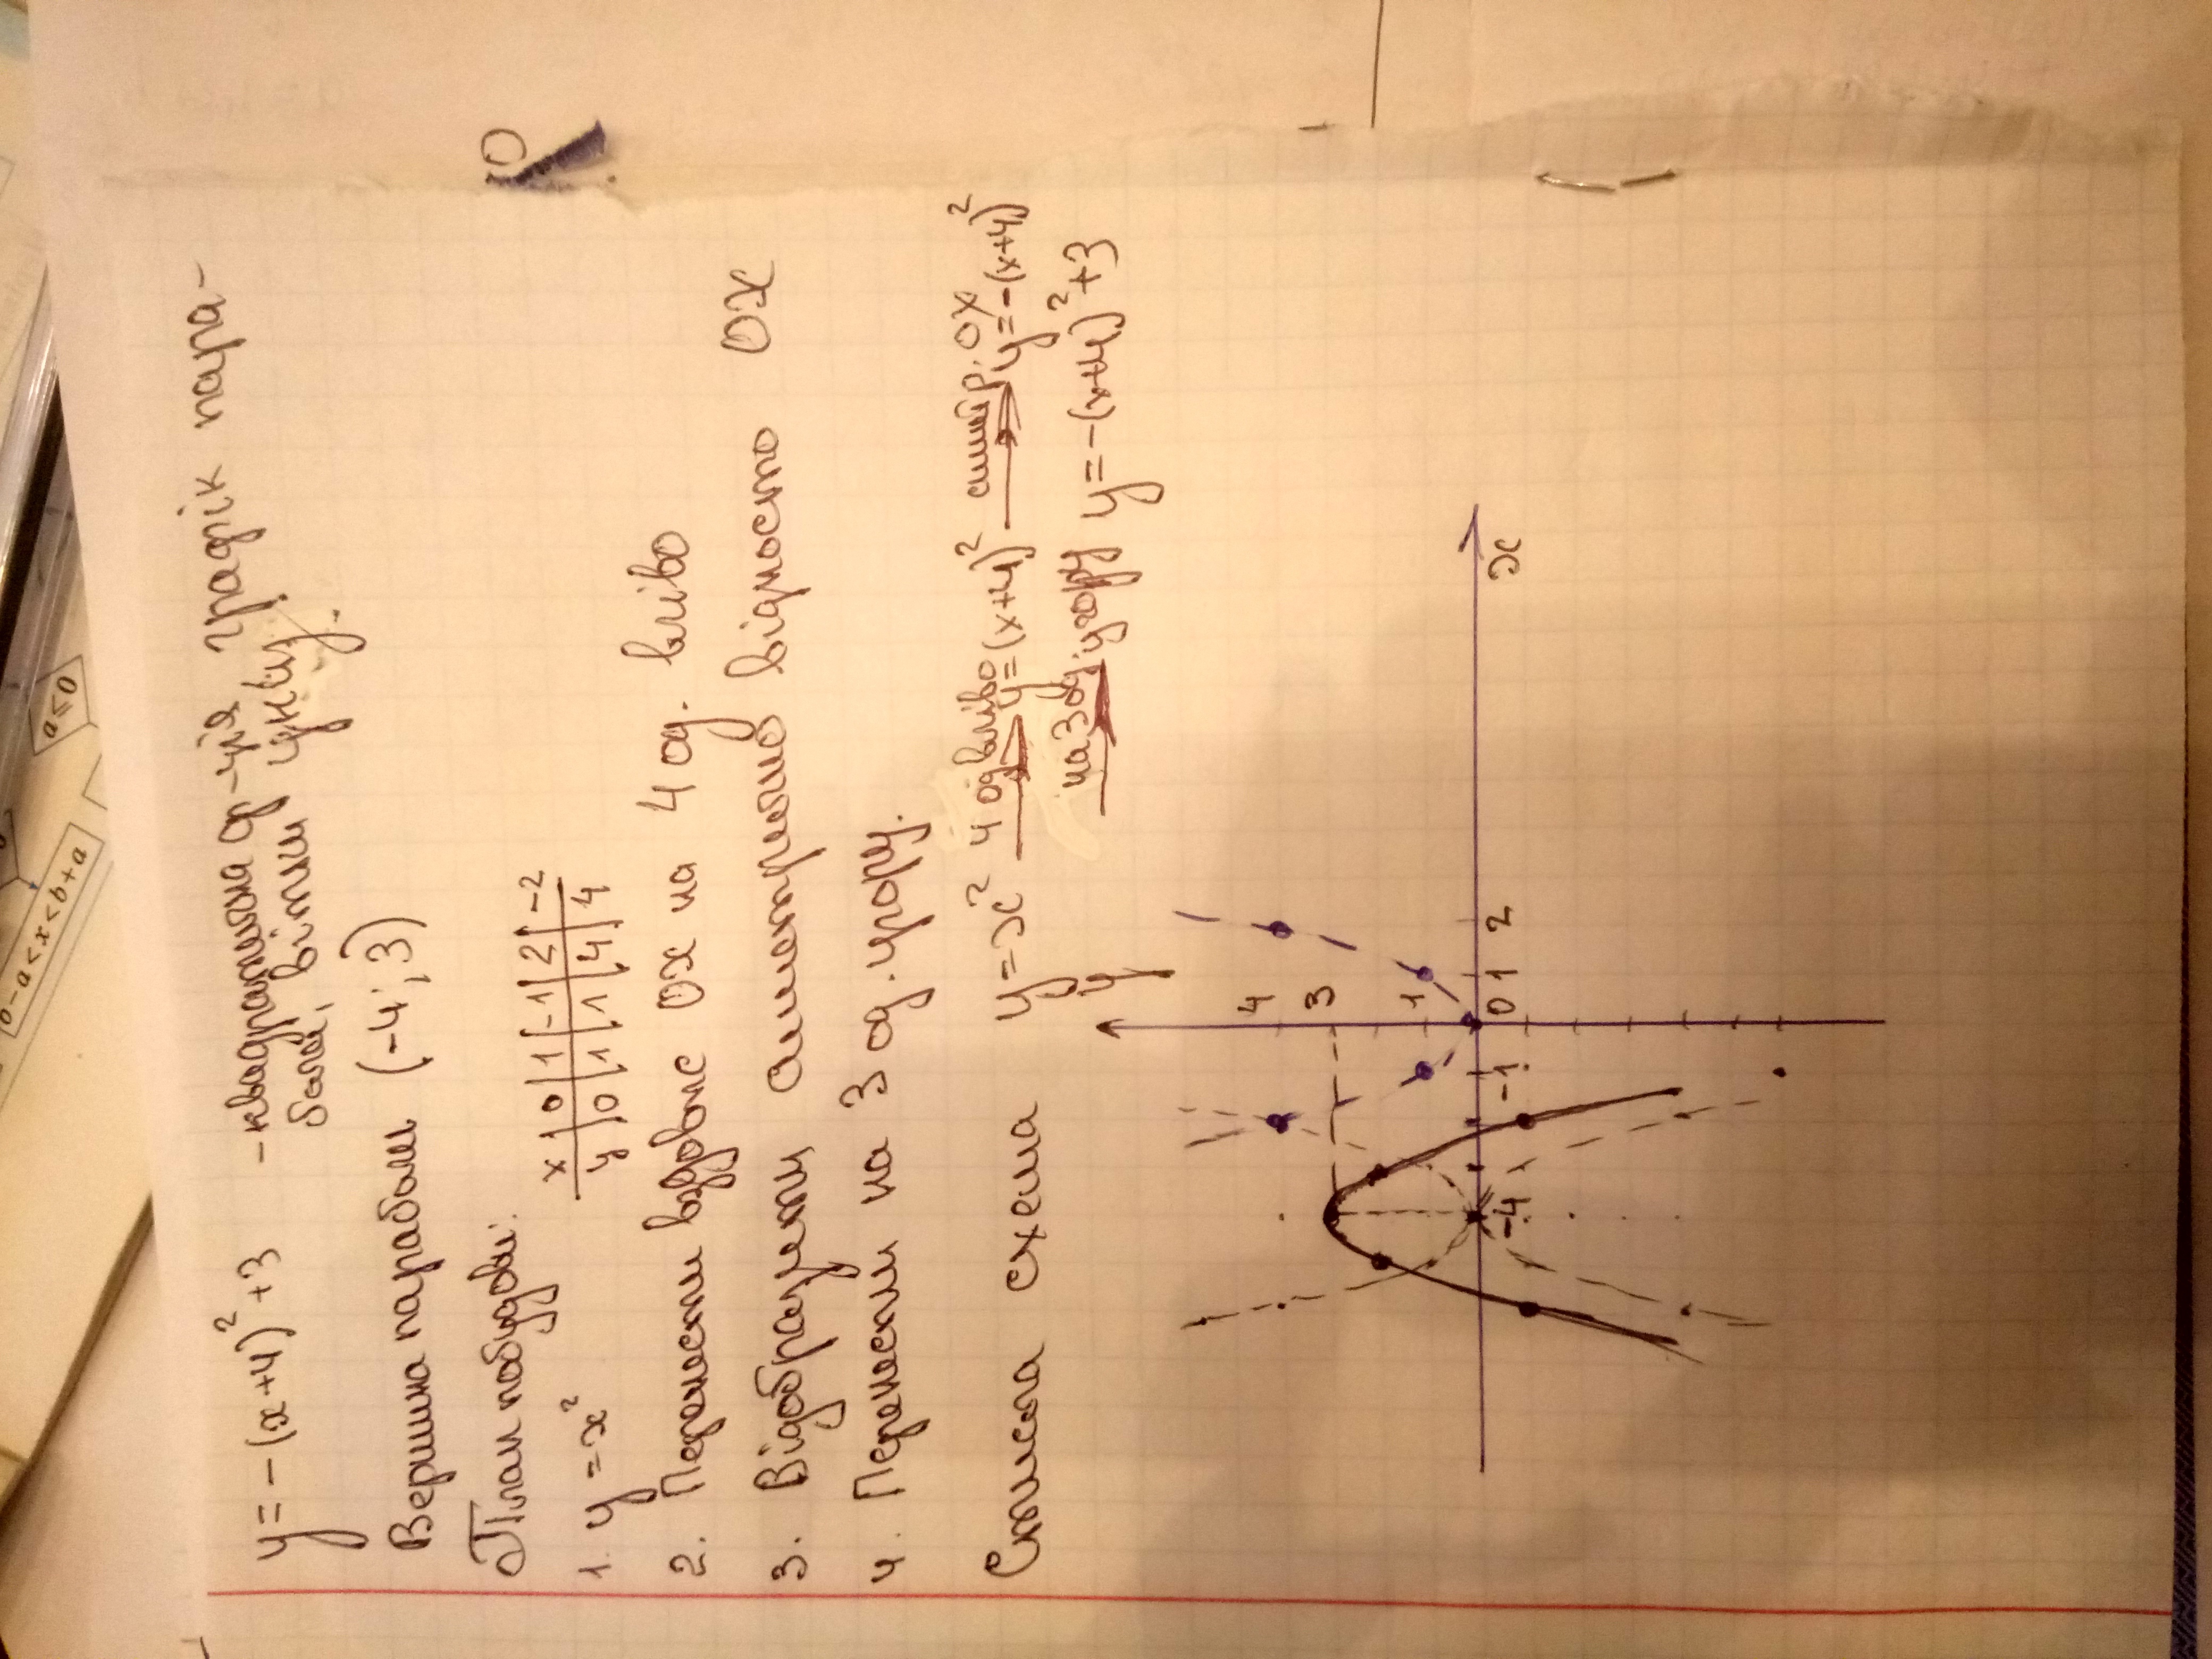 y = -(x+4)² + 3 - квадратична ф-ція графік пара-
бола, вітки униз.
Вершина параболи (-4; 3)
План побудови:
x | 0 | 1 | -1 | 2 | -2
y | 0 | 1 | 1 | 4 | 4
1. y = x²
2. Перенести вздовж OX на 4 од. вліво
3. Відобразити симетрично відносно OX
4. Перенести на 3 од. угору.
Стисла схема y = x² 4 од вліво y = (x+4)² симр. OX y = -(x+4)²
на 3 од. угору y = -(x+4)² + 3
y
4
3
1
-4 -1 0 1 2 x
10
b-a<x<b+a
a≤0